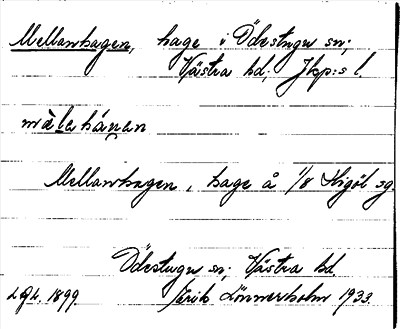 Mellanhagen, hage i Ödestugu sn;
Västra hd, Jkp:s l.
mà̀lahágan
Mellanhagen, hage å 1/8 Stigöl sg.
Ödestugu sn; Västra hd.
L.G.L. 1899. Erik Lönnerholm 1933.